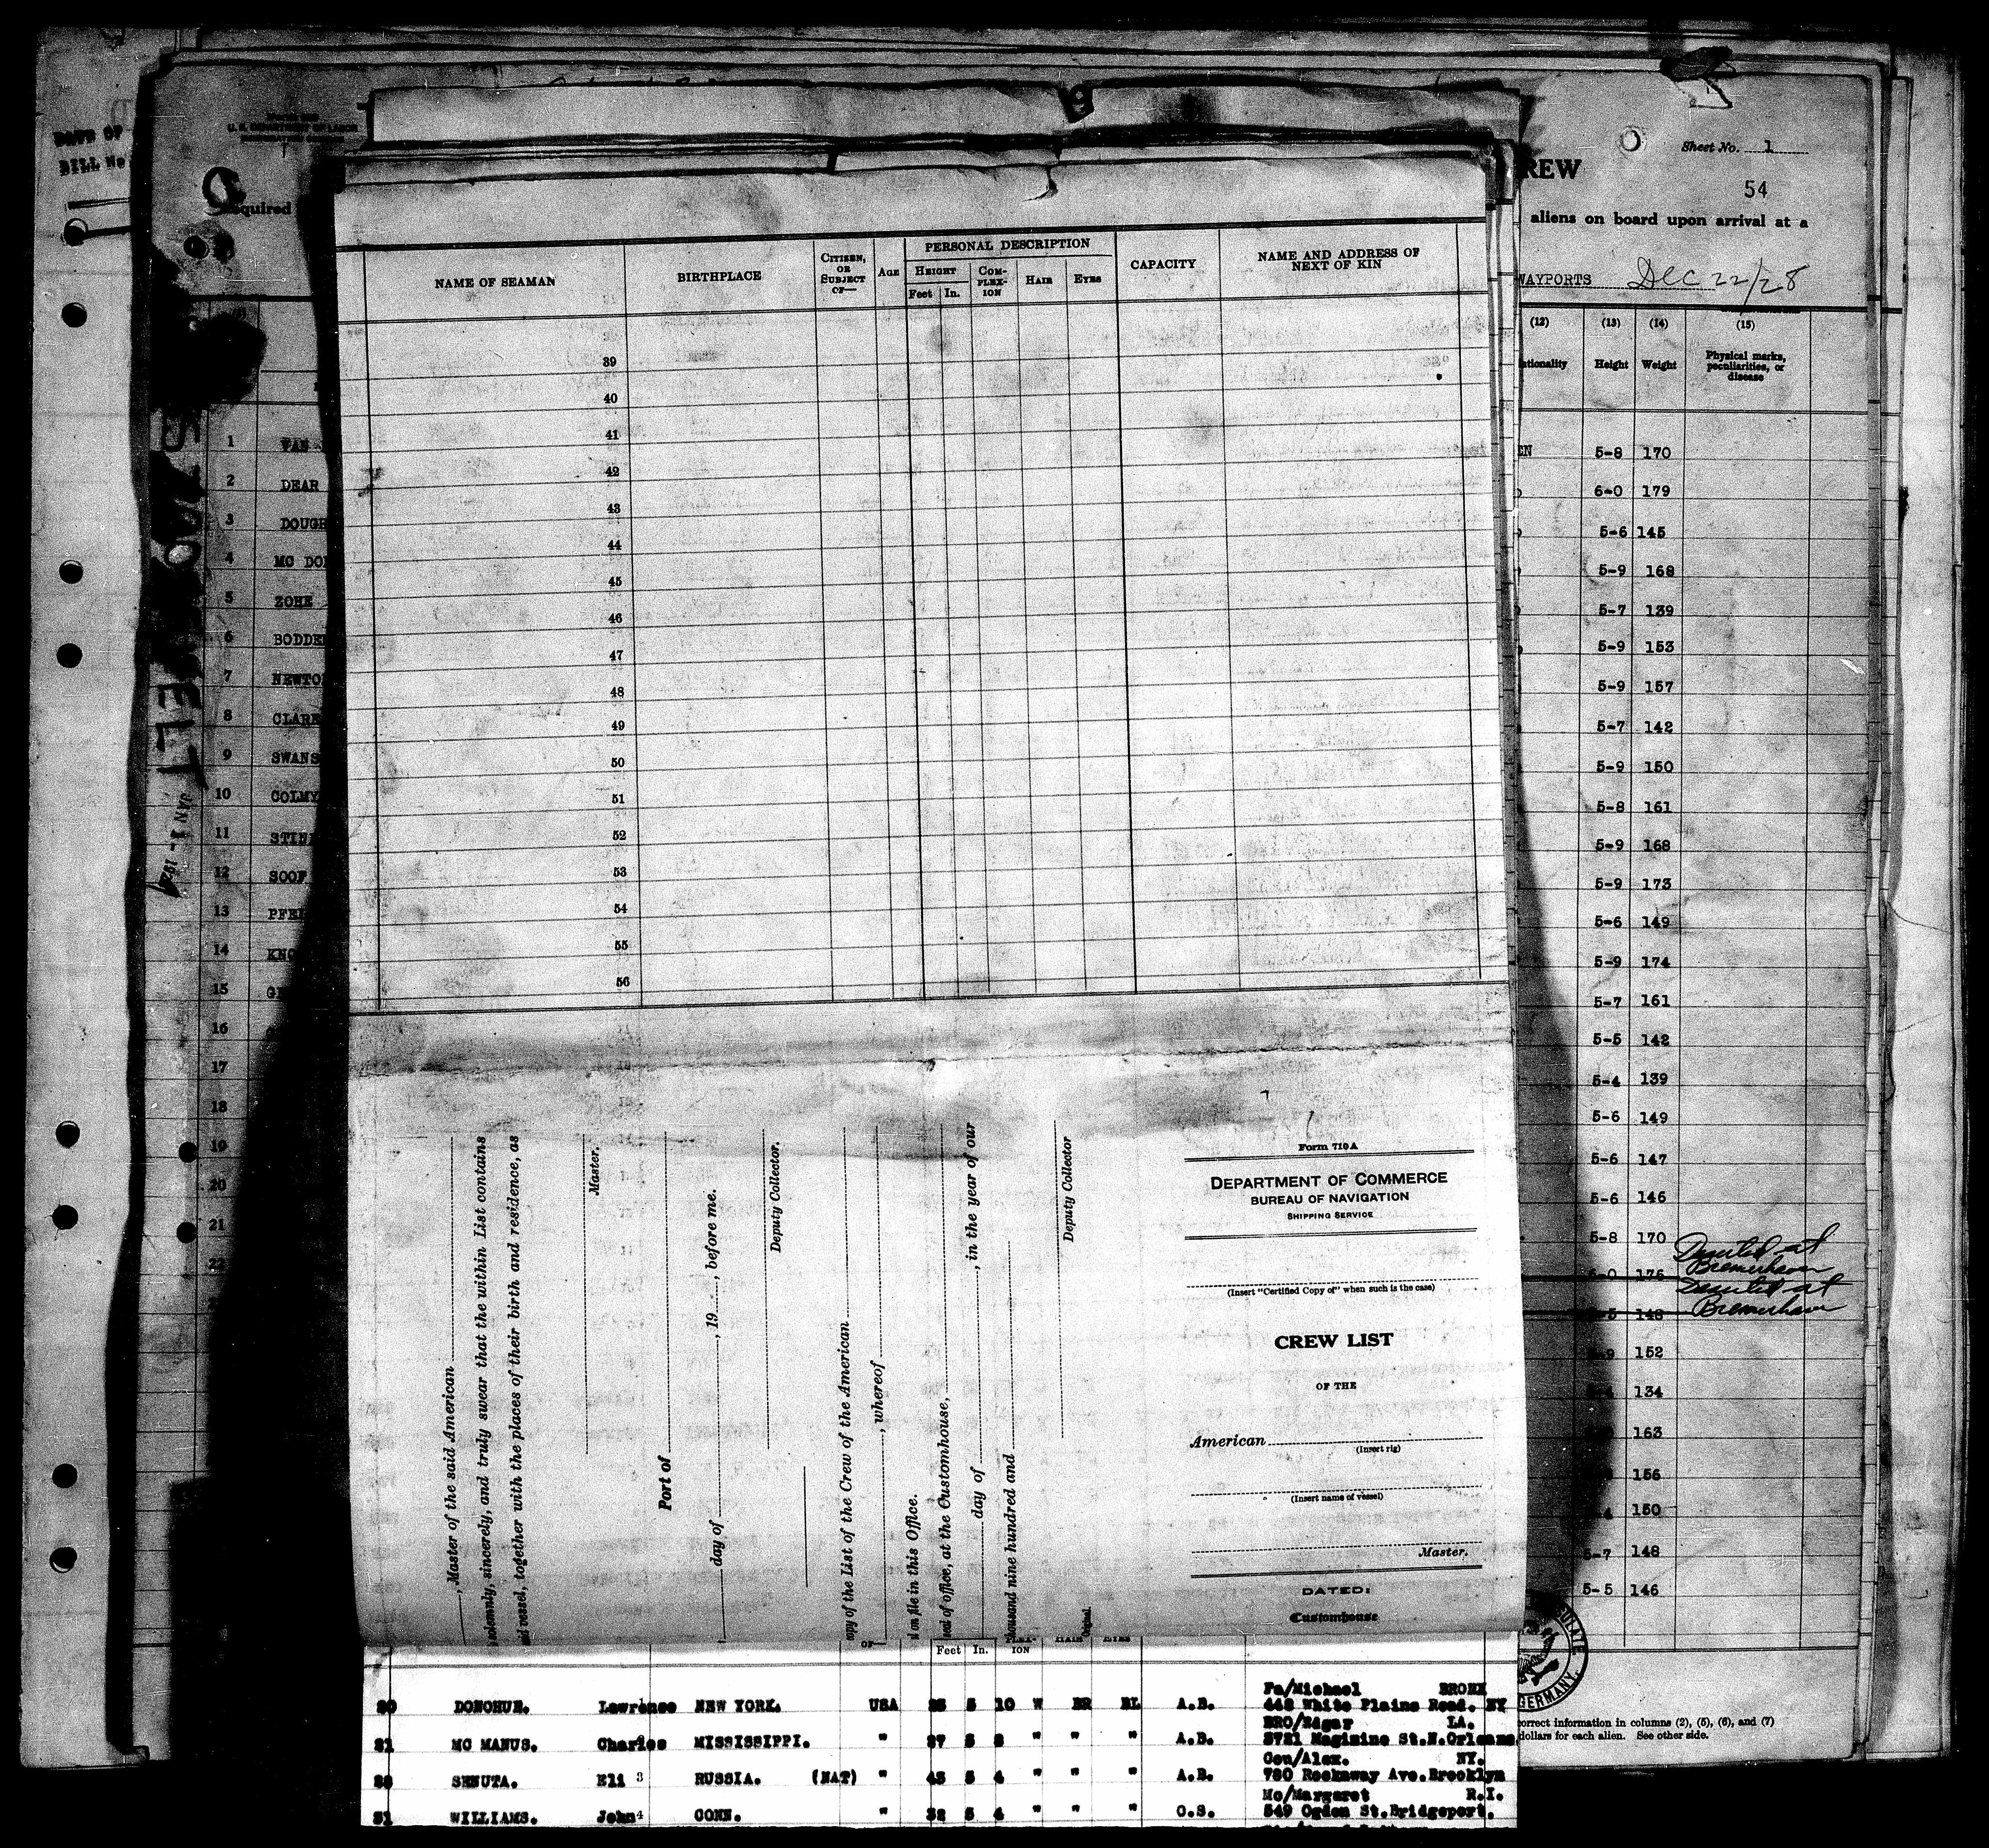 DATE OF
BILL No
U. S. DEPARTMENT OF LABOR
Required
REW
Sheet No. 1
54
aliens on board upon arrival at a
WAYPORTS Dec 22/28
(12) (13) (14) (15)
ationality Height Weight Physical marks, peculiarities, or disease
JAN 1 - 192
1 VAN
2 DEAR
3 DOUGH
4 MC DO
5 ZOHE
6 BODDE
7 NEWTO
8 CLARK
9 SWANS
10 COLMY
11 STIE
12 SOOF
13 PFE
14 KNO
15 G
16
17
18
19
20
21
22
EN 5-8 170
6-0 179
5-6 145
5-9 168
5-7 139
5-9 153
5-9 157
5-7 142
5-9 150
5-8 161
5-9 168
5-9 173
5-6 149
5-9 174
5-7 161
5-5 142
5-4 139
5-6 149
5-6 147
5-6 146
5-8 170 Deserted at Bremerhaven
6-0 176 Deserted at Bremerhaven
-5 148
-9 152
134
163
156
-4 150
5-7 148
5-5 146
SULATE
GERMANY.
correct information in columns (2), (5), (6), and (7)
dollars for each alien. See other side.
NAME OF SEAMAN BIRTHPLACE CITIZEN, OR SUBJECT OF— AGE PERSONAL DESCRIPTION CAPACITY NAME AND ADDRESS OF NEXT OF KIN
HEIGHT COM-PLEX-ION HAIR EYES
Feet In.
39
40
41
42
43
44
45
46
47
48
49
50
51
52
53
54
55
56
, Master of the said American
solemnly, sincerely, and truly swear that the within List contains
id vessel, together with the places of their birth and residence, as
Master.
Port of
day of , 19 , before me.
Deputy Collector.
opy of the List of the Crew of the American
, whereof
l on file in this Office.
seal of office, at the Customhouse,
day of , in the year of our
housand nine hundred and
Deputy Collector
Original.
Form 710 A
DEPARTMENT OF COMMERCE
BUREAU OF NAVIGATION
SHIPPING SERVICE
(Insert "Certified Copy of" when such is the case)
CREW LIST
OF THE
American
(Insert rig)
(Insert name of vessel)
Master.
DATED:
Customhouse
OF— Feet In. PLEX-ION HAIR EYES
Fa/Michael BRONX
30 DONOHUE. Lawrence NEW YORK. USA 25 5 10 W BR BL A.B. 448 White Plains Road. NY
BRO/Edgar LA.
31 MC MANUS. Charles MISSISSIPPI. " 27 5 8 " " " A.B. 3721 Magizine St.N.Orleans
Cou/Alex. NY.
SENUTA. Eli 3 RUSSIA. (NAT) " 43 5 4 " " " A.B. 780 Rockaway Ave.Brooklyn
Mo/Margaret R.I.
31 WILLIAMS. John 4 CONN. " 32 5 4 " " " O.S. 549 Ogden St.Bridgeport.